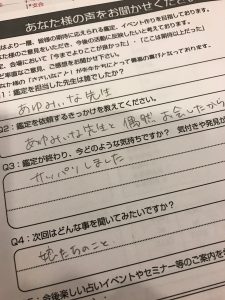 あなた様の声をお聞かせくださ
はより一層、皆様の期待に応えられる鑑定、イベント作りを目指しております。
様のご意見をいただき、今後の活動に反映したいと考えております。
は、会場において「今までよりここが良かった」・「ここは期待以上だった」
ど率直なご意見、ご感想をお聞かせ下さい。
1：鑑定を担当した先生は誰でしたか？
あゆみいな先生
Q2：鑑定を依頼するきっかけを教えてください。
あゆみいな先生と偶然、お会したから
Q3：鑑定が終わり、今どのような気持ちですか？ 気付きや発見が
サッパリしました
Q4：次回はどんな事を聞いてみたいですか？
あのこと
今後楽しい占いイベントやセミナー等のご案内を